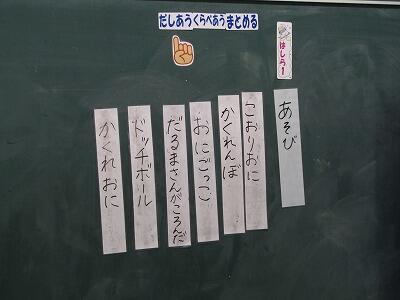 だしあうくらべあうまとめる
はしら1
あそび
こおりおに
かくれんぼ
おにごっこ
だるまさんがころんだ
ドッチボール
かくれおに